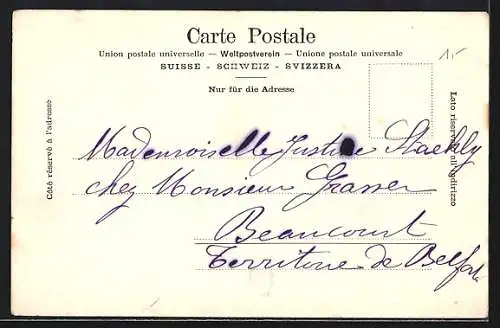 Carte Postale
1,-
Union postale universelle – Weltpostverein – Unione postale universale
SUISSE - SCHWEIZ - SVIZZERA
Nur für die Adresse
Côté réservé à l'adresse
Lato riservato all'indirizzo
Mademoiselle Justine Staehly
chez Monsieur Grasser
Beaucourt
Territoire de Belfort